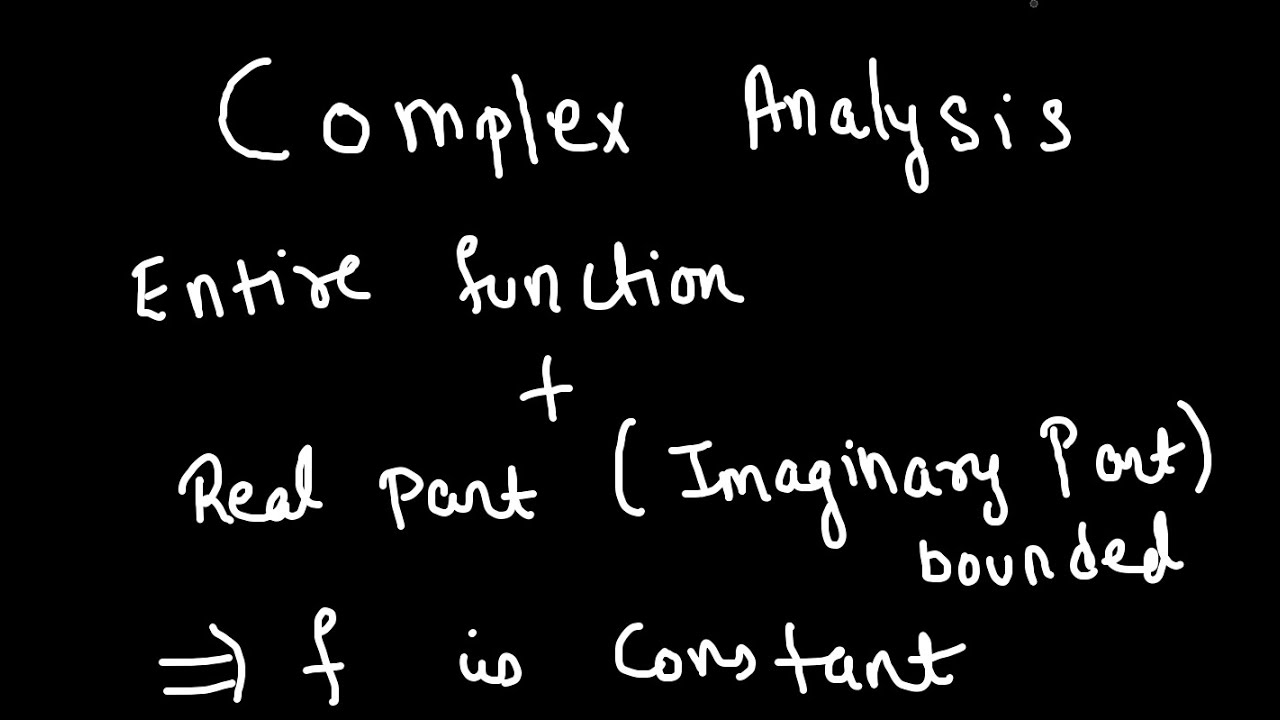 Complex Analysis
Entire function
+
Real Part (Imaginary Part)
bounded
⇒ f is constant